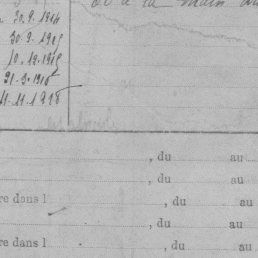 30.9.1914
30.9.1915
10.12.1915
21.3.1916
11.11.1918
ou à la main
, du au
, du au
re dans l , du au
, du au
re dans l , du au